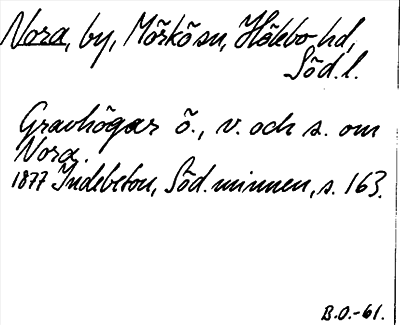 Nora, by, Mörkö sn, Hölebo hd,
Söd. l.
Gravhögar ö., v. och s. om
Nora.
1877 Indebetou, Söd. minnen, s. 163.
B.O.-61.